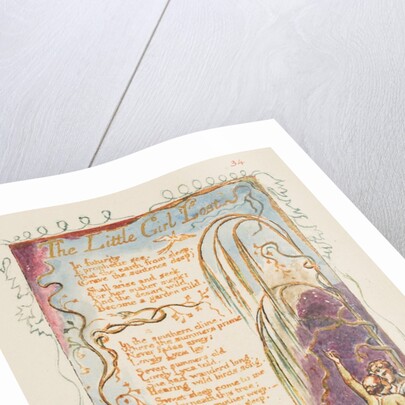 34
The Little Girl Lost
In futurity
I prophetic see
That the earth from sleep
(Grave the sentence deep)
Shall arise and seek
For her maker meek
And the desart wild
Become a garden mild
In the southern clime
Where the summers prime
Never fades away
Lovely Lyca lay
Seven summers old
Lovely Lyca told
She had wanderd long
Hearing wild birds song
Sweet sleep come to me
Underneath this tree